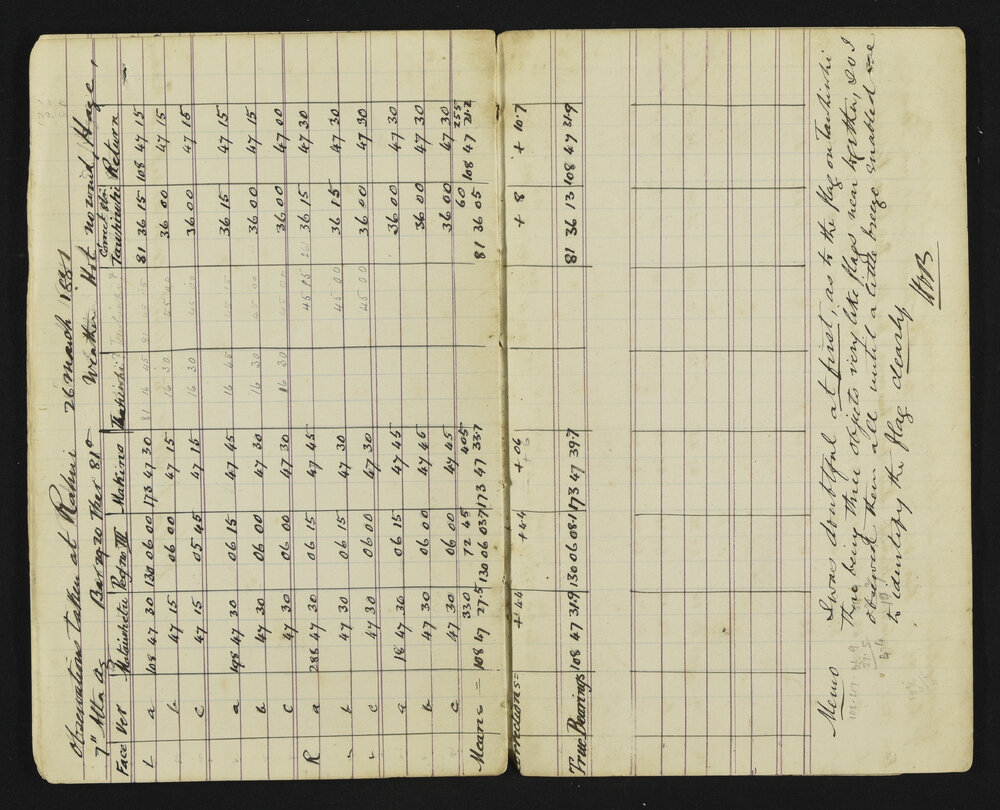 Observations taken at Rahui 26 March 1881
7" Alt Az Bar 29.20 Ther 81° Weather Hot no wind, Haze,
Face Ver Peg no III Makino Tawhiwhi Correct Stn Tawhiwhi Return
L a 108 47 30 130 06 00 173 47 30 81 16 45 81 45 15 81 36 15 108 47 15
b 47 15 06 00 47 15 16 30 45 00 36 00 47 15
c 47 15 05 45 47 15 16 30 45 00 36 00 47 15
a 198 47 30 06 15 47 45 16 45 36 15 47 15
b 47 30 06 00 47 30 16 30 45 00 36 00 47 15
c 47 30 06 00 47 30 16 30 45 00 36 00 47 00
R a 288 47 30 06 15 47 45 45 15 261 36 15 47 30
b 47 30 06 15 47 30 45 00 36 15 47 30
c 47 30 06 00 47 30 45 00 36 00 47 30
a 18 47 30 06 15 47 45 36 00 47 30
b 47 30 06 00 47 45 36 00 47 30
c 47 30 06 00 47 45 36 00 47 30
330 72 45 405 60 255
Mean = 108 47 27.5 130 06 03.7 173 47 33.7 81 36 05 108 47 21.2
Corrections = + 4.4 + 4.4 + 06 + 8 + 10.7
True Bearings 108 47 31.9 130 06 08.1 173 47 39.7 81 36 13 108 47 31.9
Memo I was doubtful at first, as to the flag on Tawhiwhi
There being three objects very like flags near together, so I
observed them all until a little breeze enabled me
to identify the flag clearly